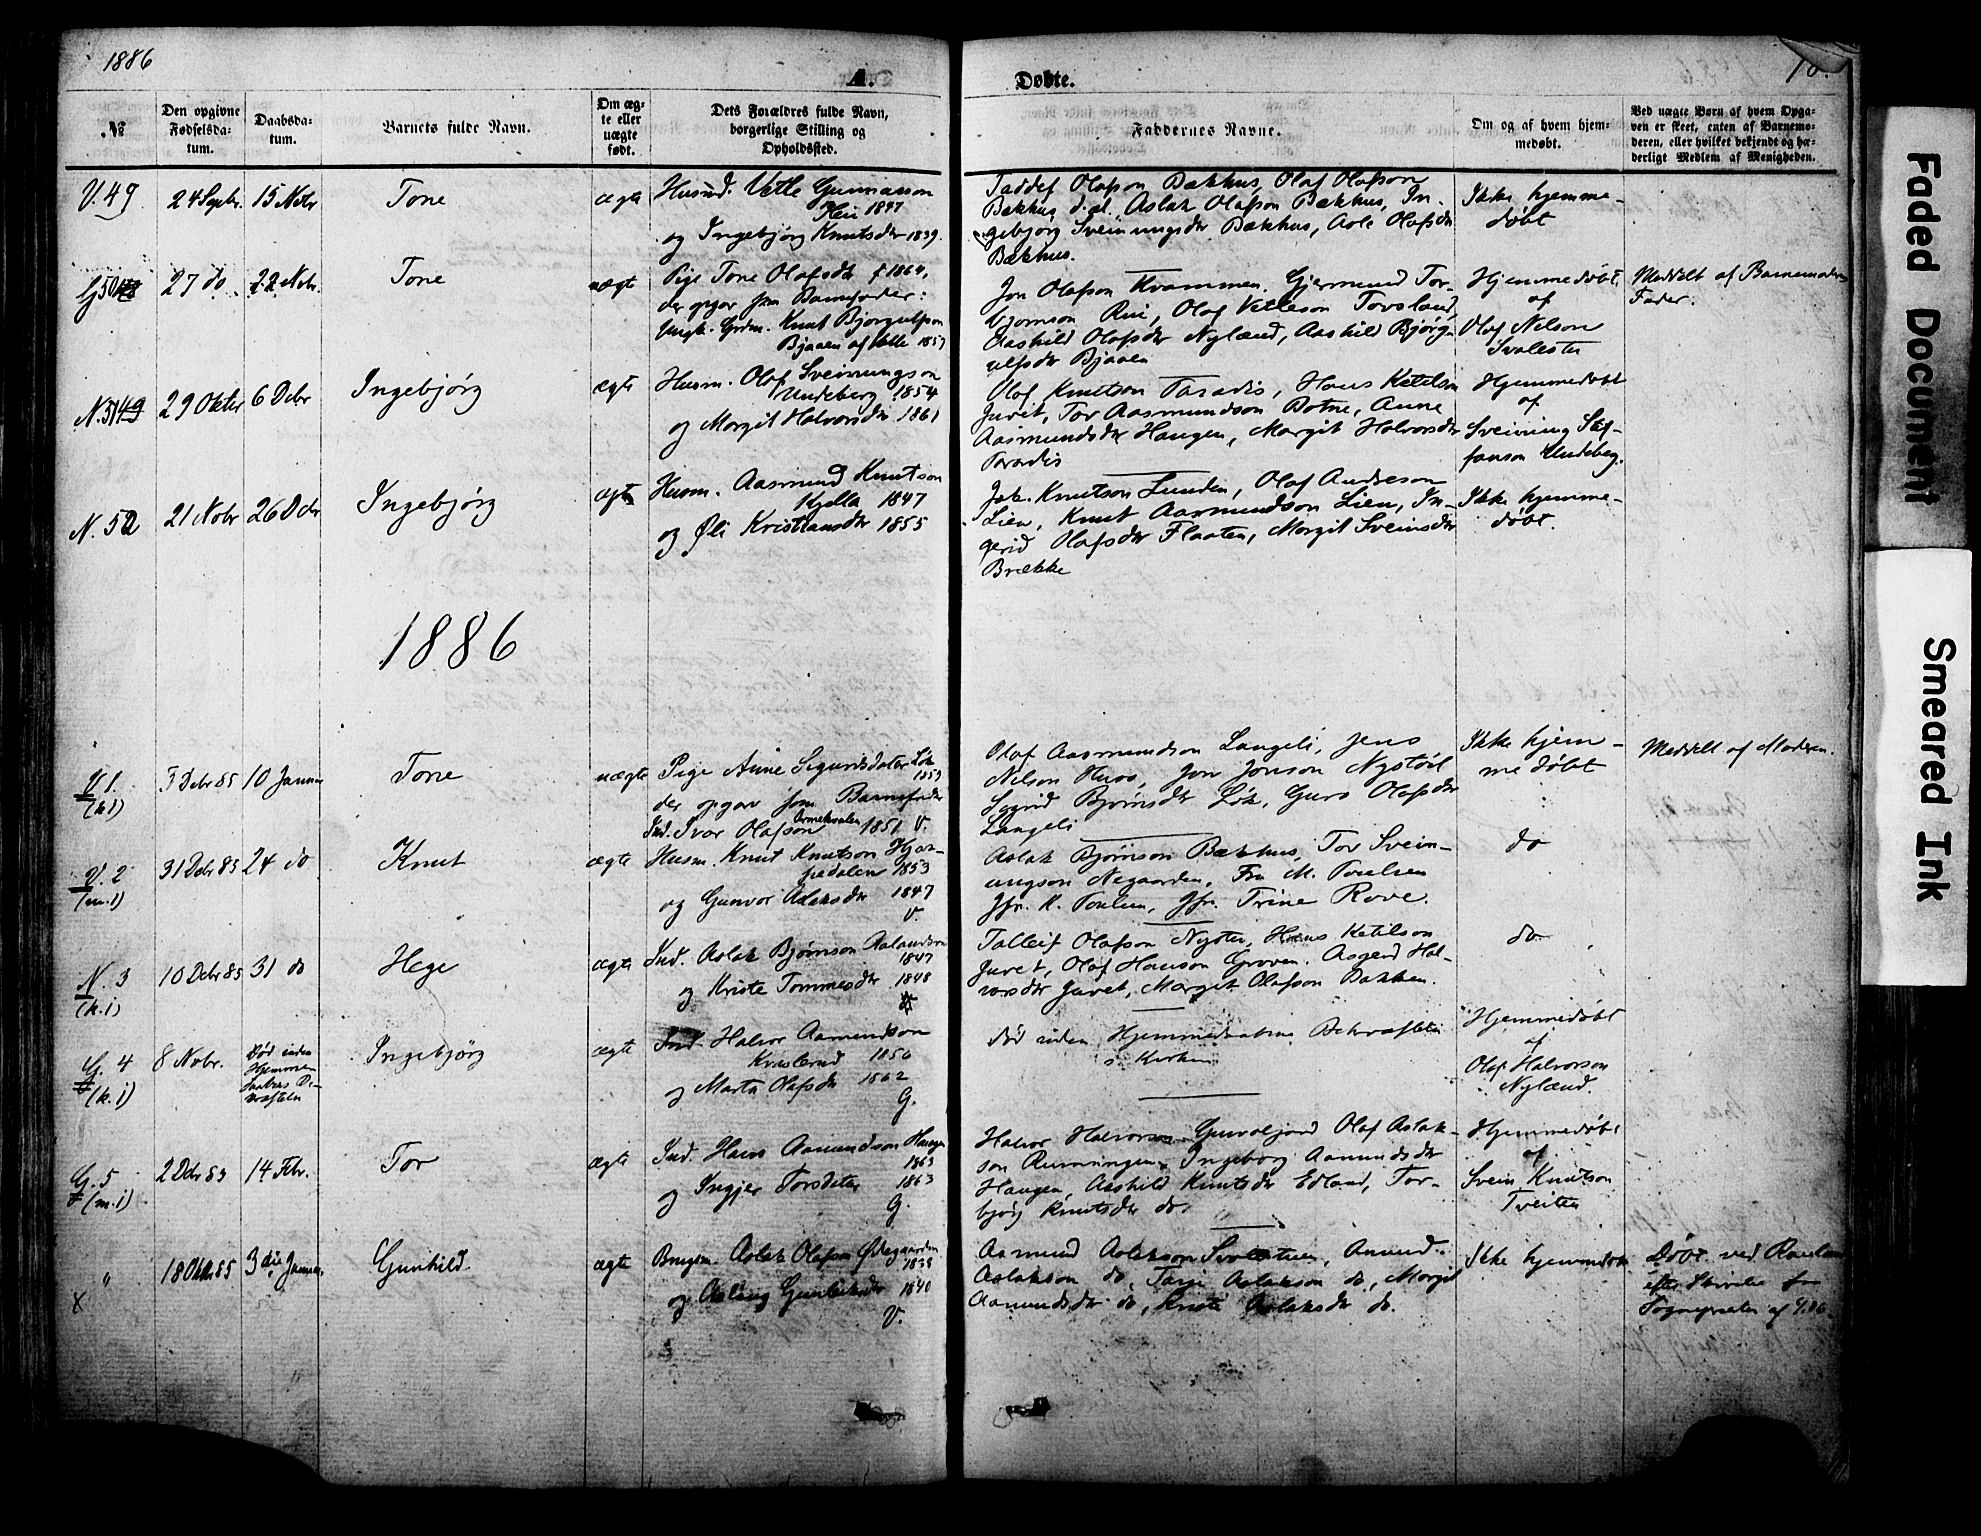 1886
A.
Døbte.
№
Den opgivne Fødselsdatum.
Daabsdatum.
Barnets fulde Navn.
Om ægte eller uægte født.
Dets Forældres fulde Navn, borgerlige Stilling og Opholdssted.
Faddernes Navne.
Om og af hvem hjemmedøbt.
Ved uægte Børn af hvem Opgaven er skeet, enten af Barnemoderen, eller hvilket bekjendt og hæderligt Medlem af Menigheden.
V. 49
24 Septbr.
15 Novbr
Tone
ægte
Vetle Gunnarson
1847
og Ingebjørg Knutsdtr 1839.
Olafson Bækhus, Olaf Olafson
Bækhus d.æ., Aslak Olafson Bækhus, In-
gebjørg Sveinungsdtr Bækhus, Olafsdtr
Bækhus.
Ikke hjemme-
døbt
27 do
22 Novbr.
Tone
uægte
Pige Tone Olafsdtr f 1864,
der opgav som Barnefader:
Ungk. Grdm. Knut Bjørgulfson
Bjaaen af Valle 1857
Jon Olafson Kvammen, Gjermund Tor-
bjørnson Rui, Olaf Vetleson Tovsland,
Aashild Olafsdtr Nyland, Aashild Bjørg-
ulfsdtr Bjaaen
Hjemmedøbt
af
Olaf Nelson
Meddelt af Barnemoderens
Fader.
29 Oktbr
6 Debr
Ingebjørg
ægte
Husm. Olaf Sveinungson
Undeberg 1854
og Margit Halvorsdtr 1861
Olaf Knutson Paradis, Hans Ketilson
Juvet, Tor Aasmundson Botne, Anne
Aasmundsdtr Haugen, Margit Halvorsdtr
Paradis
Hjemmedøbt
af
Sveinung Stef-
fanson Undeberg.
N. 52
21 Nobr
26 Debr
Ingebjørg
ægte
Husm. Aasmund Knutson
1847
og Øli Kristiansdtr 1855
Knutson Lunden, Olaf Andreson
Lien, Knut Aasmundson Lien, In-
gerid Olafsdtr Flaaten, Margit Sveinsdtr
Brække
Ikke hjemme-
døbt.
1886
V 1.
(k.1)
10 Januar
Tone
uægte
Pige Anne Sigurdsdatter Løk
der opgav som Barnefader
Ind. Ivar Olafson 1851 V.
Olaf Aasmundson Langeli, Jens
Nelson Huso, Jon Jonson Nystøil
Sigrid Bjørnsdtr Løk, Guro Olafsdtr
Langeli
Ikke hjem-
me døbt
Meddelt af Moderen.
V. 2
(m.1)
31 Debr 85
24 do
Knut
ægte
Husm. Knut Knutson Hjar-
1853
og Gunvor Aslaksdtr 1847
V
Aslak Bjørnson Bækhus, Tor Svein-
ungson Negaarden, Fru M. Poulsen
Jfr. K. Poulsen, Jfr. Trine Rove.
do
N. 3
(k.1)
10 Debr 85
31 do
Hege
ægte
Ind. Aslak Bjørnson
1847
og Kriste Tommesdtr 1848
Talleif Olafson Hans Ketilson
Juvet, Olaf Hanson Groven, Asgerd Hal-
vorsdtr Juvet, Margit Olafson Bakken.
do
G. 4
(k.1)
8 Nobr.
Død inden
Hjemme-
daabens Be-
kræftelse
Ingebjørg
ægte
Ind. Halvor Aamundson
1850
og Marta Olafsdtr 1862
G.
død inden Hjemmedaabens Bekræftelse
i Kirken
Hjemmedøbt
af
Olaf Halvorson
Nylænd.
G. 5
(m.1)
2 Debr 85
14 Febr.
Tor
ægte
Ind. Hans Aamundson Haugen
1863
og Ingjer Torsdatter 1863
G.
Halvor Halvorson Olaf Aslak-
son Ingeborg Aamundsdtr
Haugen, Aashild Knutsdtr Edland, Tor-
bjørg Knutsdtr do.
Hjemmedøbt
af
Svein Knutson
Tveiten
"
18 Oktb. 85
3die Januar
Gunhild
ægte
Brugm. Aslak Olafson Ødegaarden
1838
og Aslaug 1840
V.
Aamund Aslakson Anund
Aslakson do, Tarje Aslakson do, Margit
Aamundsdtr do, Kriste Aslaksdtr do.
Ikke hjemmedøbt
Døbt ved Rauland
efter Skrivelse fra
Sognepresten af
Faded Document
Smeared Ink